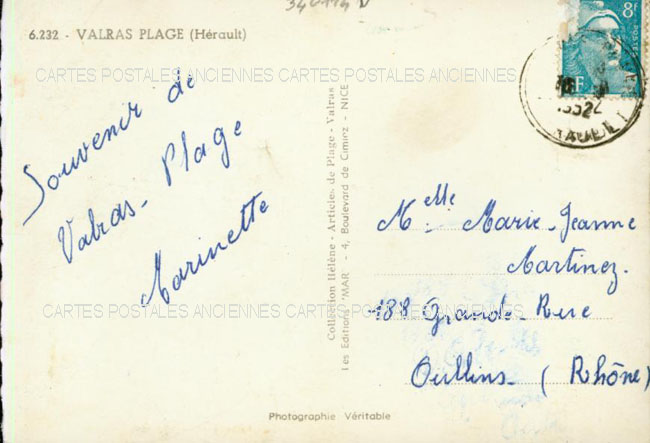 6.232 - VALRAS PLAGE (Hérault)
Souvenir de
Valras - Plage
Marinette
Collection Hélène - Articles de Plage - Valras
Les Editions "MAR" - 4, Boulevard de Cimiez - NICE
8F
POSTES
Melle Marie-Jeanne
Martinez.
188 Grande-Rue
Oullins (Rhône)
Photographie Véritable
CARTES POSTALES ANCIENNES CARTES POSTALES ANCIENNES
CARTES POSTALES ANCIENNES CARTES POSTALES ANCIENNES